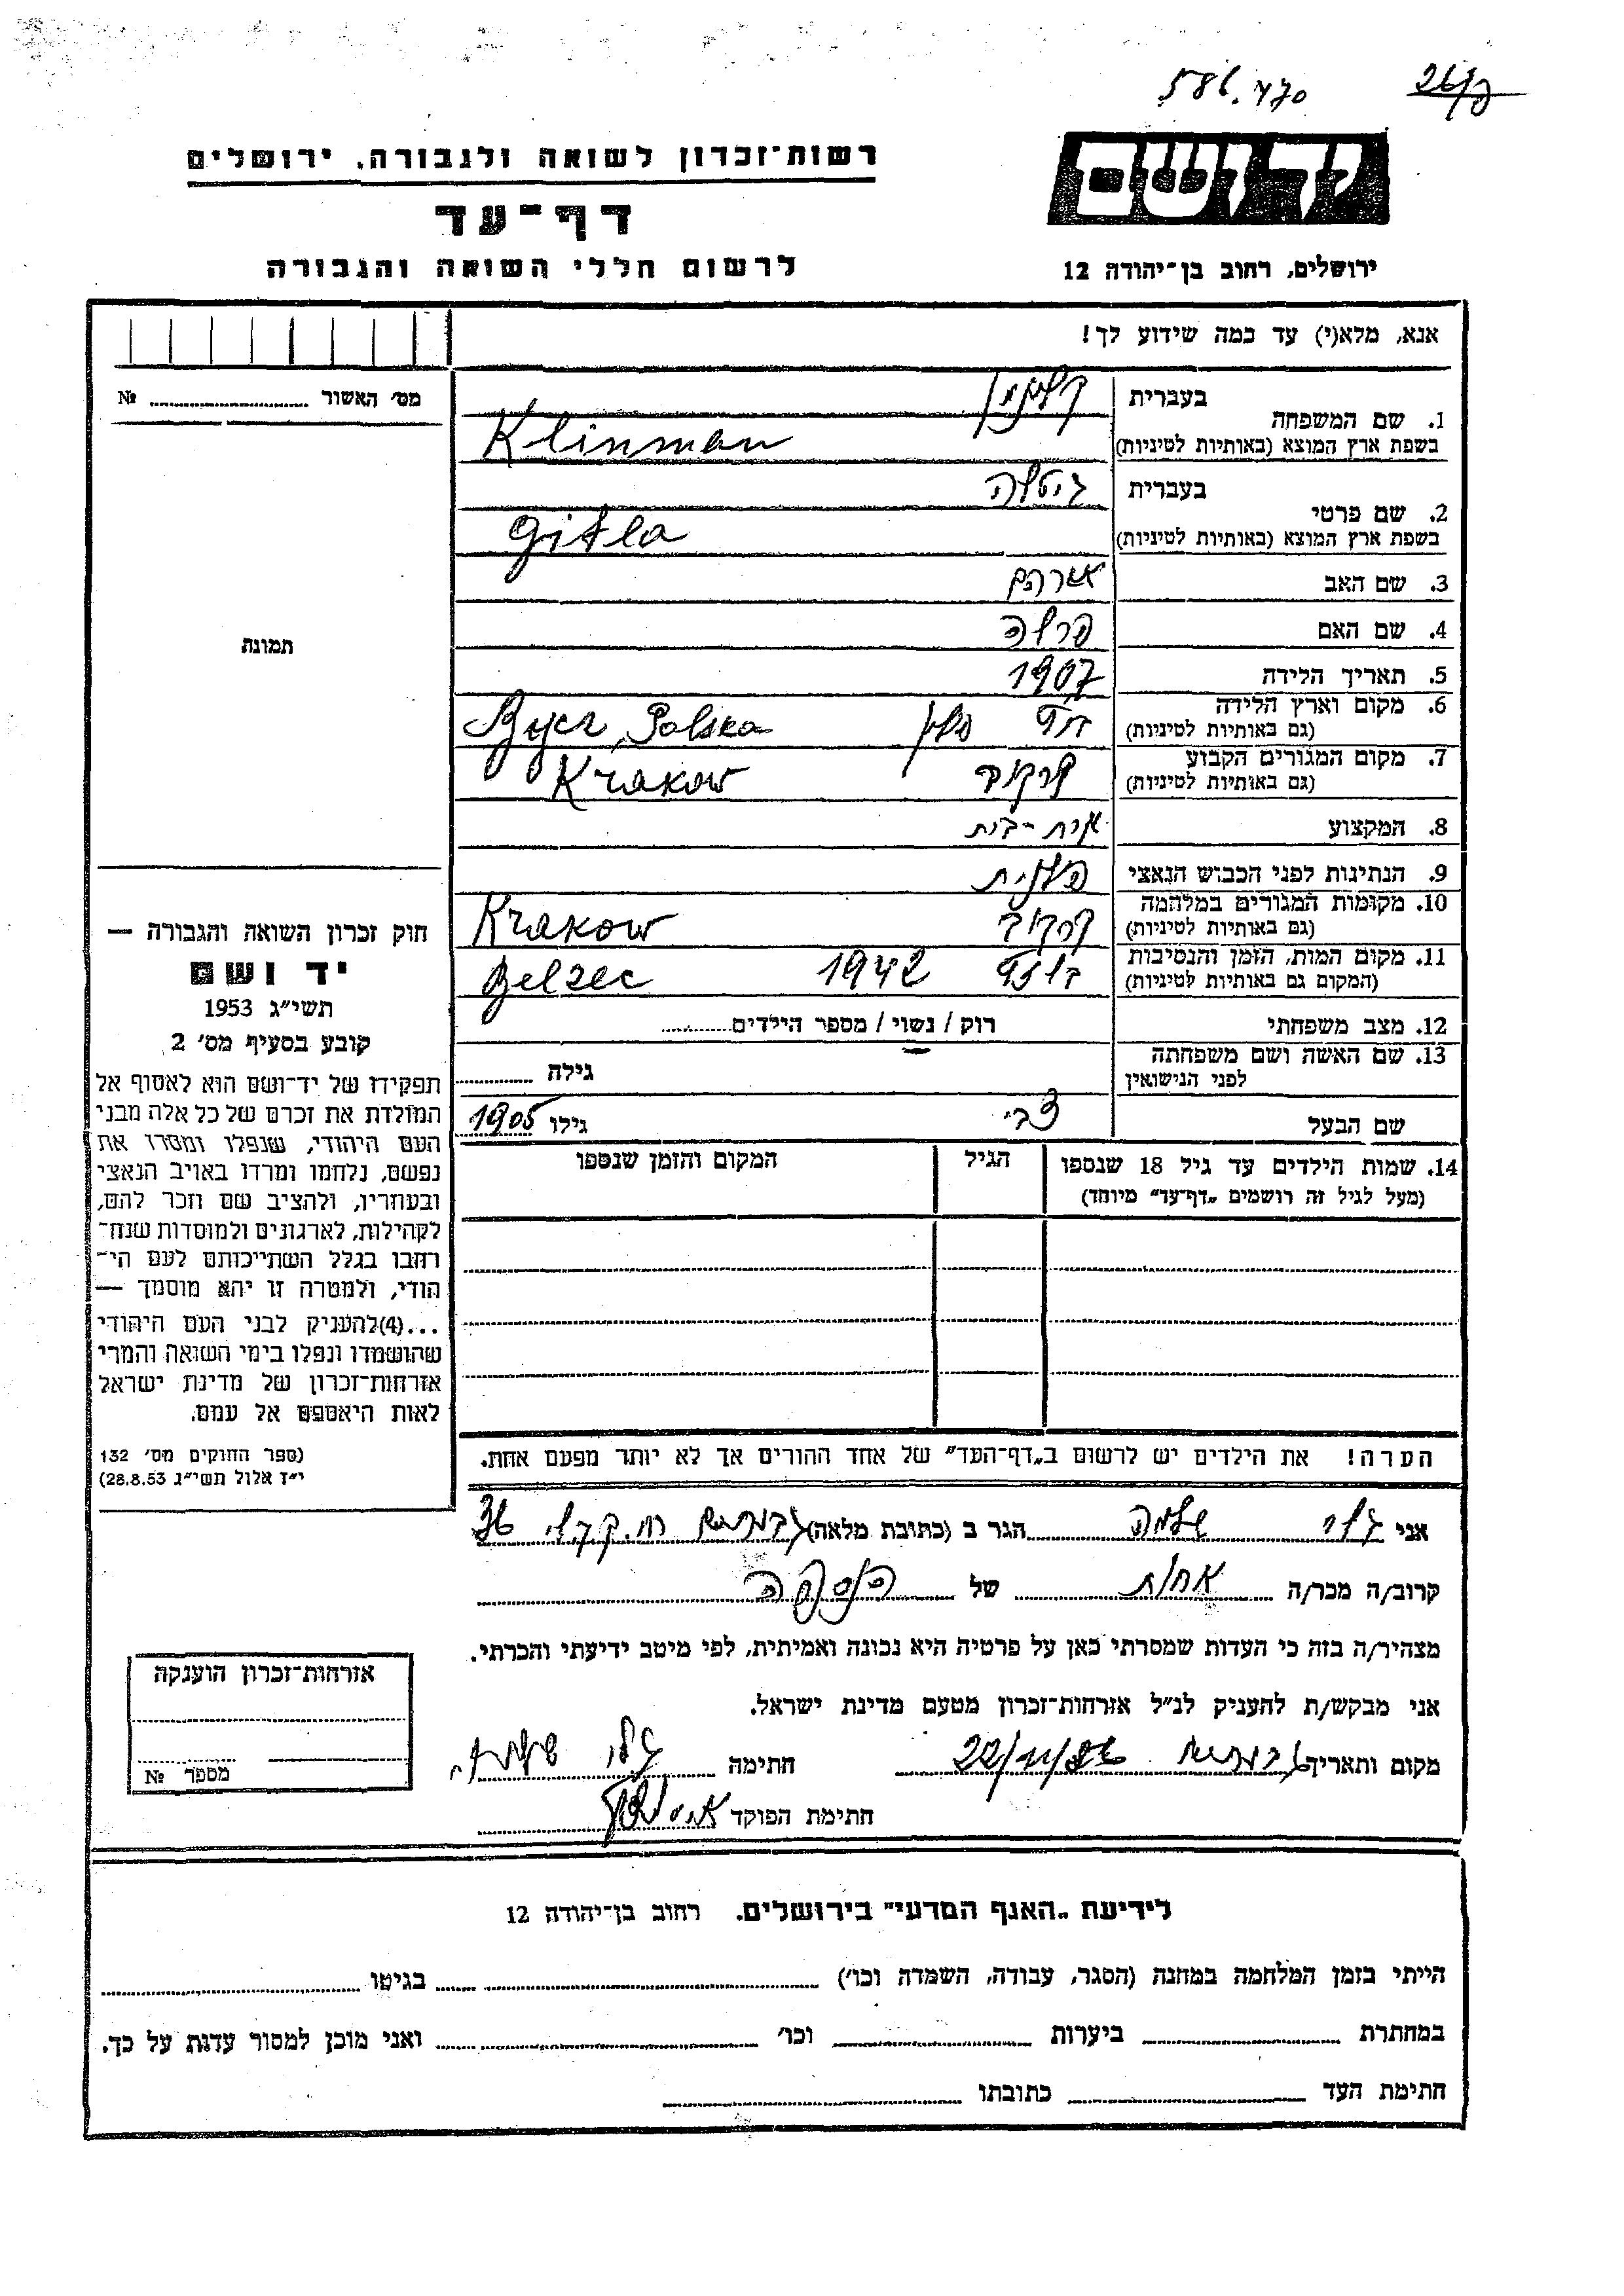 586.470
יד ושם
רשות־זכרון לשואה ולגבורה, ירושלים
דף־עד
לרשום חללי השואה והגבורה
ירושלים, רחוב בן־יהודה 12
אנא, מלא(י) עד כמה שידוע לך!
מס׳ האשור № ..........
1. שם המשפחה בעברית קלינמן
בשפת ארץ המוצא (באותיות לטיניות) Klinman
2. שם פרטי בעברית גיטלה
בשפת ארץ המוצא (באותיות לטיניות) Gitla
3. שם האב אברהם
4. שם האם פרלה
5. תאריך הלידה 1907
6. מקום וארץ הלידה
(גם באותיות לטיניות) פולין Polska
7. מקום המגורים הקבוע
(גם באותיות לטיניות) קרקוב Krakow
8. המקצוע עקרת-בית
9. הנתינות לפני הכבוש הנאצי פולנית
10. מקומות המגורים במלחמה
(גם באותיות לטיניות) קרקוב Krakow
11. מקום המות, הזמן והנסיבות
(המקום גם באותיות לטיניות) בלזץ 1942 Belzec
12. מצב משפחתי רוק / נשוי / מספר הילדים..........
13. שם האשה ושם משפחתה
לפני הנישואין גילה ..........
שם הבעל צבי גילו 1905
14. שמות הילדים עד גיל 18 שנספו הגיל המקום והזמן שנספו
(מעל לגיל זה רושמים „דף־עד״ מיוחד)
הערה! את הילדים יש לרשום ב„דף־העד״ של אחד ההורים אך לא יותר מפעם אחת.
תמונה
חוק זכרון השואה והגבורה —
יד ושם
תשי״ג 1953
קובע בסעיף מס׳ 2
תפקידו של יד־ושם הוא לאסוף אל
המולדת את זכרם של כל אלה מבני
העם היהודי, שנפלו ומסרו את
נפשם, נלחמו ומרדו באויב הנאצי
ובעוזריו, ולהציב שם וזכר להם,
לקהילות, לארגונים ולמוסדות שנח־
רבו בגלל השתייכותם לעם הי־
הודי, ולמטרה זו יהא מוסמך —
...(4)להעניק לבני העם היהודי
שהושמדו ונפלו בימי השואה והמרי
אזרחות־זכרון של מדינת ישראל
לאות היאספם אל עמם.
(ספר החוקים מס׳ 132
י״ז אלול תשי״ג 28.8.53)
אני שלמה הגר ב (כתובת מלאה) 36
קרוב/ה מכר/ה אחות של הנספה
מצהיר/ה בזה כי העדות שמסרתי כאן על פרטיה היא נכונה ואמיתית, לפי מיטב ידיעתי והכרתי.
אני מבקש/ת להעניק לנ״ל אזרחות־זכרון מטעם מדינת ישראל.
מקום ותאריך 22/11/86 חתימה
חתימת הפוקד
אזרחות־זכרון הוענקה
מספר №
לידיעת „האגף המדעי״ בירושלים. רחוב בן־יהודה 12
הייתי בזמן המלחמה במחנה (הסגר, עבודה, השמדה וכו׳) .......... בגיטו ..........
במחתרת .......... ביערות .......... וכו׳ .......... ואני מוכן למסור עדות על כך.
חתימת העד .......... כתובתו ..........